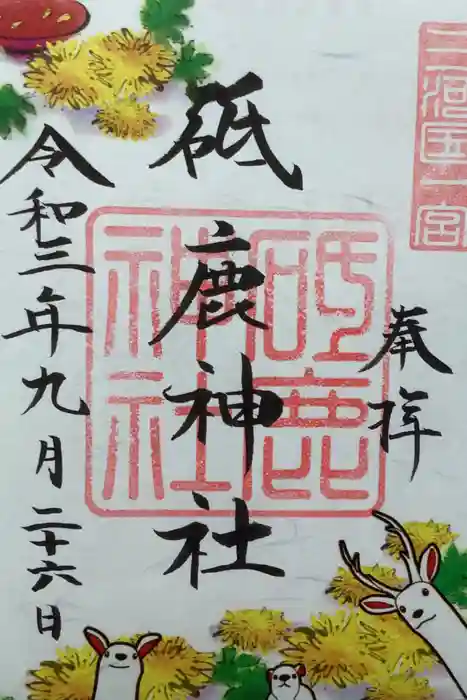 三河国一宮
奉拝
砥鹿神社
砥鹿神社
令和三年九月二十六日